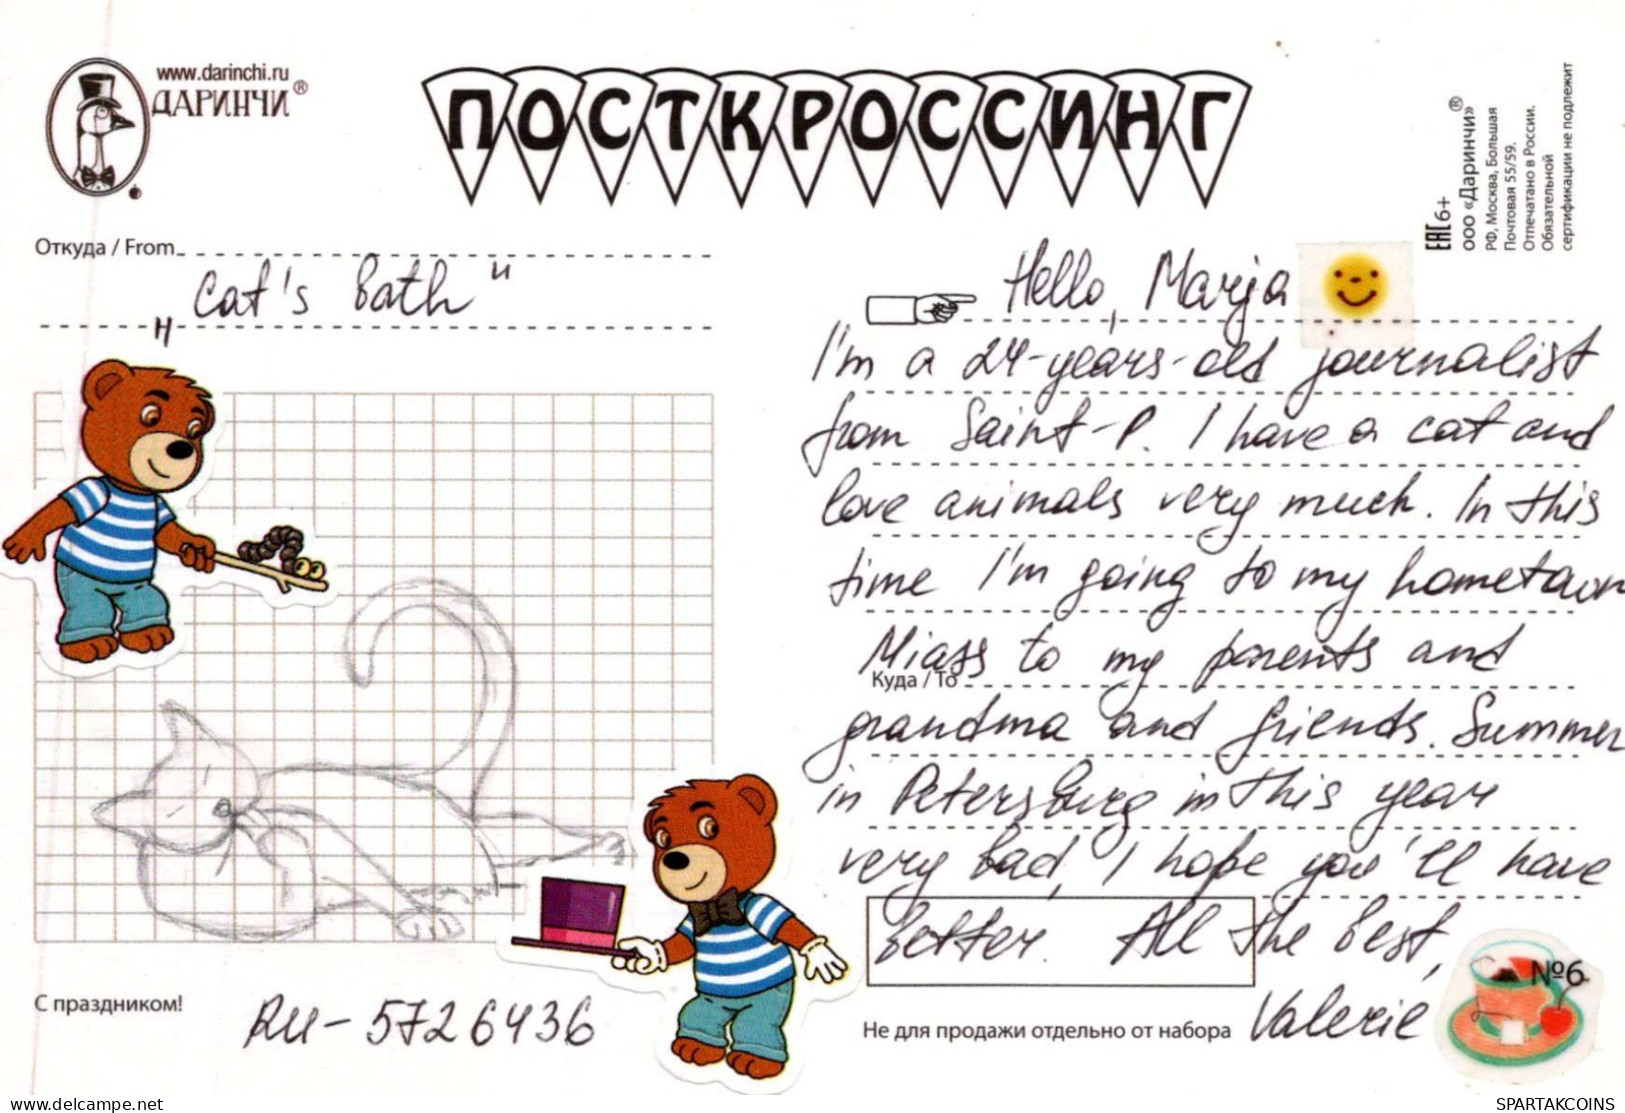 www.darinchi.ru
ДАРИНЧИ®
ПОСТКРОССИНГ
EAC 6+
ООО «Даринчи»®
РФ, Москва, Большая
Почтовая 55/59.
Отпечатано в России.
Обязательной
сертификации не подлежит
Откуда / From
„Cat's bath"
Hello, Marja
I'm a 24-years-old journalist
from Saint-P. I have a cat and
love animals very much. In this
time I'm going to my hometown
Miass to my parents and
Куда / To
grandma and friends. Summer
in Petersburg in this year
very bad, I hope you'll have
better. All the best,
Valerie
№6
С праздником!
RU-5726436
Не для продажи отдельно от набора
delcampe.net
SPARTAKCOINS